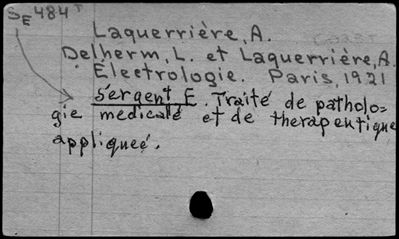 SE 484 T
Laquerrière, A.
Delherm, L. et Laquerrière, A.
Électrologie. Paris, 1921
Sergent E. Traité de patholo=
gie médicale et de therapeutique
appliqueé.